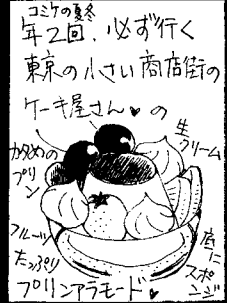 コミケの夏冬
年2回、必ず行く
東京の小さい商店街の
ケーキ屋さん♥の
生クリーム
かためのプリン
フルーツたっぷり
底にスポンジ
プリンアラモード♥